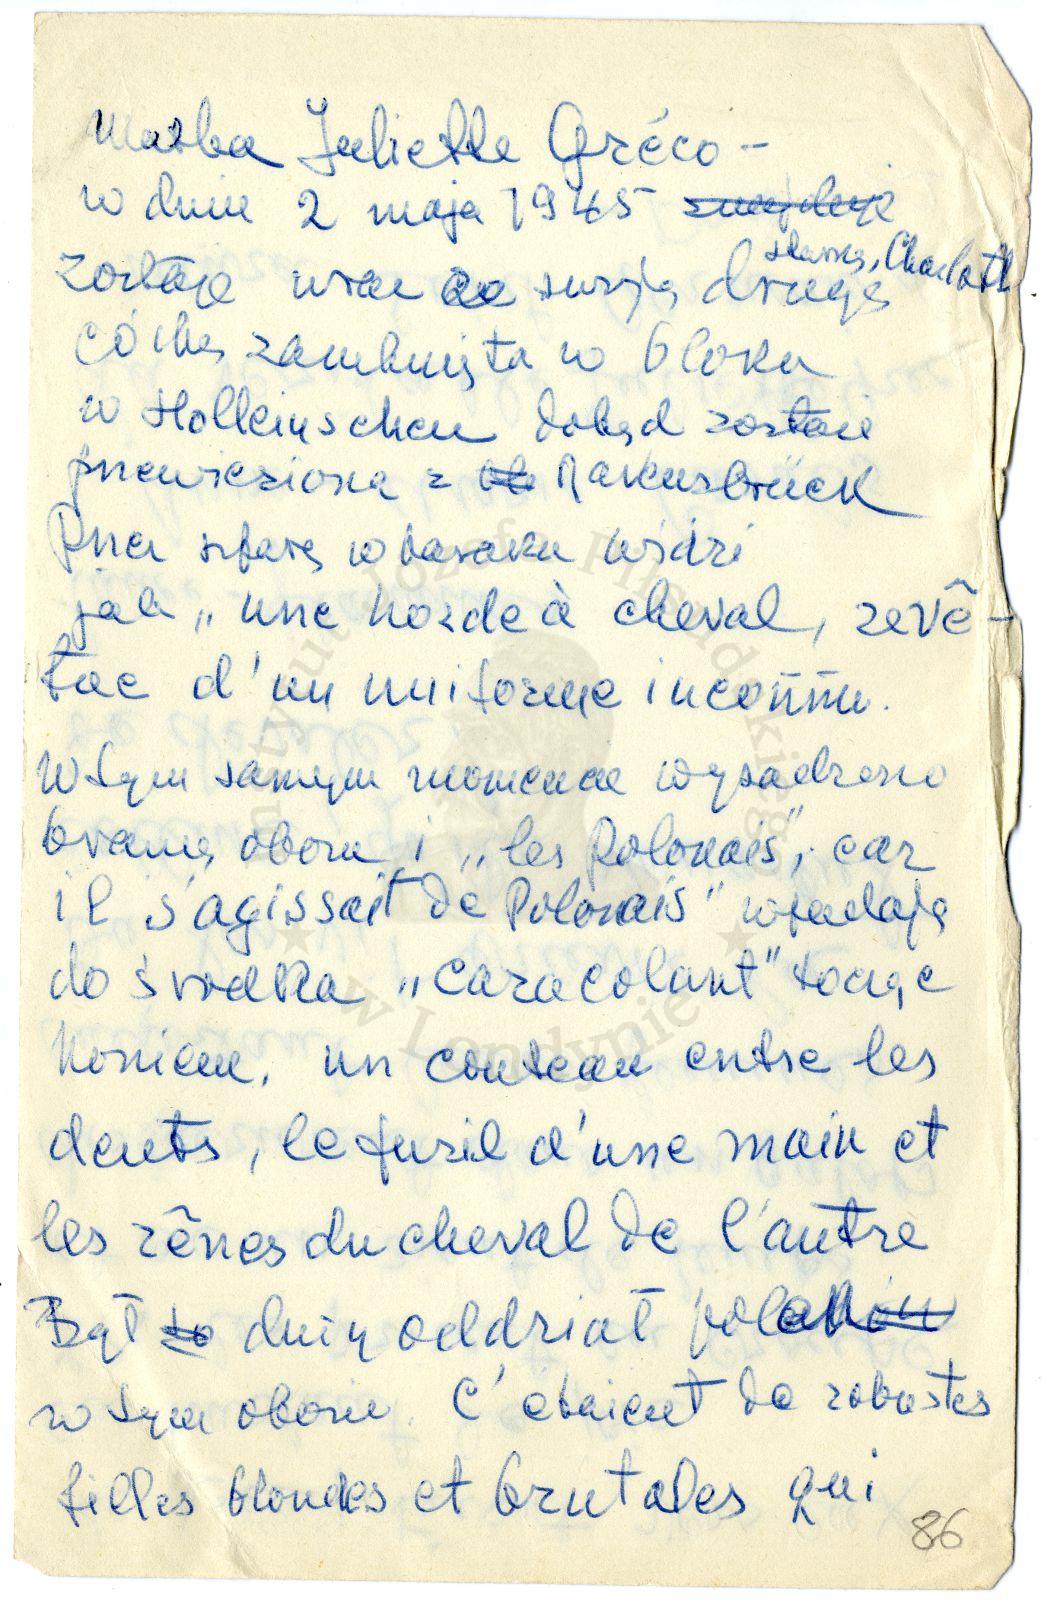 Matka Juliette Gréco -
w dniu 2 maja 1945 znajduje
starszą, Charlotte
zostaje wraz ze swoją drugą
córką zamknięta w bloku
w Holleinschen dokąd zostaje
przewieziona z Rakensbrück
Przez szparę w baraku widzi
jak „une horde à cheval, revê-
tue d'un uniforme inconnu.
W tym samym momencie wysadzono
bramę obozu i „les Polonais", car
il s'agissait de Polonais" wpadają
do środka „caracolant" tocząc
koniem, un couteau entre les
dents, le fusil d'une main et
les rênes du cheval de l'autre
Był to duży oddział polaków
w tym obozie. C'étaient de robustes
filles blondes et brutales qui
86
Instytut Józefa Piłsudskiego
w Londynie